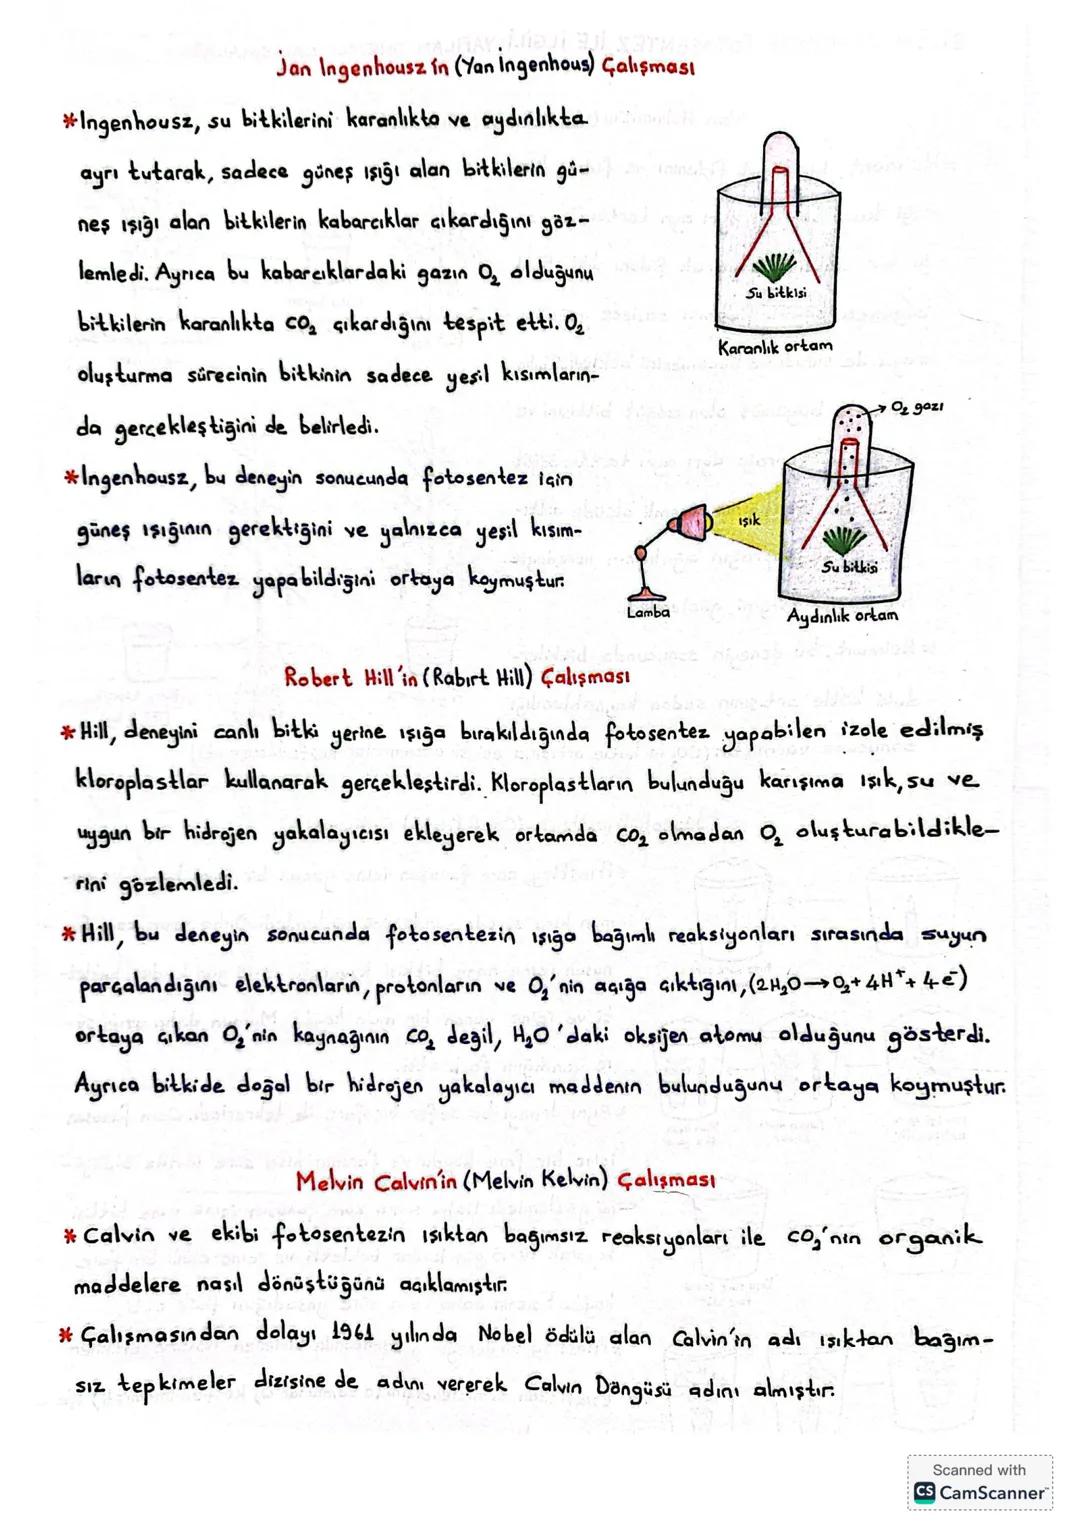 Jan Ingenhousz'in (Yan İngenhous) Çalışması
*Ingenhousz, su bitkilerini karanlıkta ve aydınlıkta
ayrı tutarak, sadece güneş ışığı alan bitkilerin gü-
neş ışığı alan bitkilerin kabarcıklar çıkardığını göz-
lemledi. Ayrıca bu kabarcıklardaki gazın O₂ olduğunu
bitkilerin karanlıkta CO₂ çıkardığını tespit etti. O₂
oluşturma sürecinin bitkinin sadece yeşil kısımların-
da gerçekleştiğini de belirledi.
*Ingenhousz, bu deneyin sonucunda fotosentez için
güneş ışığının gerektiğini ve yalnızca yeşil kısım-
ların fotosentez yapabildiğini ortaya koymuştur.
Su bitkisi
Karanlık ortam
O₂ gazı
ışık
Su bitkisi
Lamba
Aydınlık ortam
Robert Hill'in (Rabırt Hill) Çalışması
*Hill, deneyini canlı bitki yerine ışığa bırakıldığında fotosentez yapabilen izole edilmiş
kloroplastlar kullanarak gerçekleştirdi. Kloroplastların bulunduğu karışıma ışık, su ve
uygun bir hidrojen yakalayıcısı ekleyerek ortamda CO₂ olmadan O₂ oluşturabildikle-
rini gözlemledi.
*Hill, bu deneyin sonucunda fotosentezin ışığa bağımlı reaksiyonları sırasında suyun
parçalandığını elektronların, protonların ve O₂'nin açığa çıktığını, (2H₂O→O₂+4H⁺+4e⁻)
ortaya çıkan O₂'nin kaynağının CO₂ değil, H₂O'daki oksijen atomu olduğunu gösterdi.
Ayrıca bitkide doğal bir hidrojen yakalayıcı maddenin bulunduğunu ortaya koymuştur.
Melvin Calvin'in (Melvin Kelvin) Çalışması
*Calvin ve ekibi fotosentezin ışıktan bağımsız reaksiyonları ile CO₂'nin organik
maddelere nasıl dönüştüğünü açıklamıştır.
*Çalışmasından dolayı 1961 yılında Nobel ödülü alan Calvin'in adı ışıktan bağım-
sız tepkimeler dizisine de adını vererek Calvin Döngüsü adını almıştır.
Scanned with
CS CamScanner